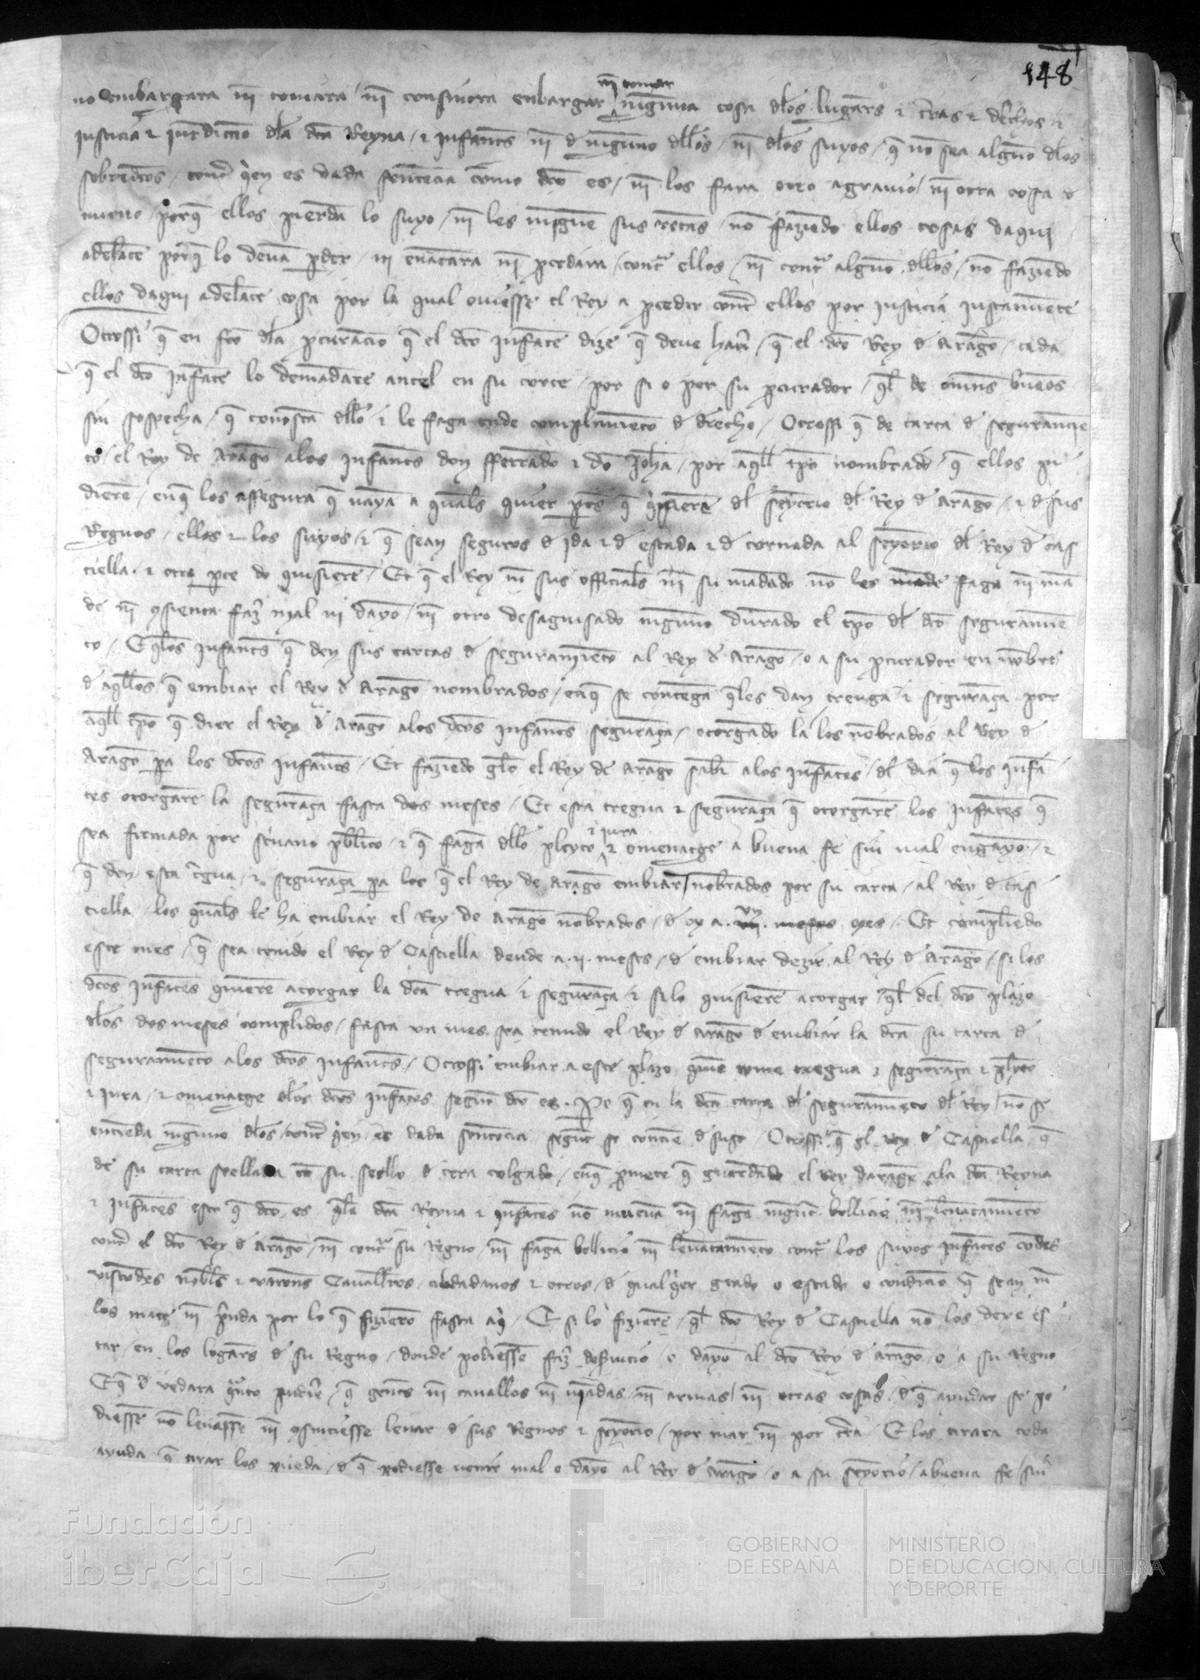 148
no embargara ni tomara ni consintra enbargar ni tomar ninguna cosa dlos lugars & tras & drechos &
justicia & juridiccio dla dca Reyna & infants ni d ninguno dllos ni dlos suyos q no sea alguno dlos
sobredcos contra qen es dada sentencia como dco es ni los fara otro agravio ni otra cosa d
nuevo porq ellos pierda lo suyo ni les mengue sus rentas no faziedo ellos cosas daqui
adelate porq lo devan pder ni enantara ni pcedira contra ellos ni contra alguno dllos no faziedo
ellos daqui adelate cosa por la qual oviesse el Rey a pcedir contra ellos por justicia justamente
Otrossi q en fco dla pcuracio q el dco Infante dize q deve haver q el dco Rey d Arago cada
q el dco Infate lo demadare antel en su corte por si o por su pcurador ql de omns buenos
sin sospecha q conosca dllo & le faga ende complimieto d drecho Otrossi q de carta d seguramie
to el Rey de Arago alos Infants don fferrado & do Joha por aqll tpo nombrado q ellos pi
diere enq los assegura q vaya a quals quier pts q qsieren dl seyorio dl Rey d Arago & d sus
Regnos ellos & los suyos & q sean seguros d ida & d estada & d tornada al seyorio dl Rey d Cas
tiella & otra pte do quisiere Et q el Rey ni sus officials ni su madado no les faga ni ma
de ni qsienta faz mal ni dayo ni otro desaguisado ninguno durado el tpo dl dco seguramie
to Eqlos Infants q den sus cartas d seguramieto al Rey d Arago o a su pcurador en nobre
d aqllos q embiar el Rey d Arago nombrados enq se contega qles dan treuga & seguraça por
aqll tpo q dier el Rey d Arago alos dcos Infants seguraça otorgado la los nobrados al Rey d
Arago pa los dcos Infants Et faziedo glo el Rey de Arago sabr alos Infates dl dia q los Infa
tes otorgare la seguraça fasta dos meses Et esta tregua & seguraça q otorgare los Infates q
sea firmada por scrivano publico & q faga dllo pleyto & jura & omenatge a buena fe sin mal engayo &
q den esta tregua & seguraça pa los q el Rey de Arago embiar nobrados por su carta al Rey d Cas
tiella los quals le ha embiar el Rey de Arago nobrados d oy a un mes Et compliedo
este mes q sea tenido el Rey d Castiella dende a .ij. meses d embiar dezir al Rey d Arago si los
dcos Infates quiere atorgar la dca tregua & seguraça & si lo quisiere atorgar ql del dco plazo
dlos dos meses complidos fasta un mes sea tenudo el Rey d Arago d embiar la dca su carta d
seguramieto alos dcos Infants Otrossi embiar a este plazo quie tome tregua & seguraça & pleyto
& jura & omenatge dlos dcos Infates segut dco es. Po q en la dca carta dl seguramieto dl Rey no se
entieda ninguno dlos contra qen es dada sentencia segut se contiene d suso Otrossi q el Rey d Castiella q
de su carta seellada co su seello d cera colgado enq pmete q guardado el Rey darago ala dca Reyna
& infates esto q dco es qla dca Reyna & infates no mueva ni faga nigun bollicio ni levatamieto
contra el dco Rey d Arago ni contra su Regno ni faga bollicio ni levatamieto contra los suyos infates codes
viscodes nobls & varons Cavalleros cibdadanos & otros d qualqer grado o estado o condicio q sean ni
los mate ni prenda por lo q fizieron fasta aq Et si lo fiziere ql dco Rey d Castiella no los dexe es
tar en los logars d su Regno donde podiesse faz desvicio o dayo al dco Rey d Arago o a su Regno
Et q d vedara quto pudiere q gents ni cavallos ni viadas ni armas ni otras cosas d q ayudar se po
diesse no levasse ni qsintiesse levar d sus Regnos & seyorio por mar ni por tra E los tirara toda
ayuda q tirar los pueda d q podiesse venir mal o dayo al Rey d Arago o a su seyorio abuena fe sin
Fundación
iberCaja
GOBIERNO
DE ESPAÑA
MINISTERIO
DE EDUCACIÓN, CULTURA
Y DEPORTE